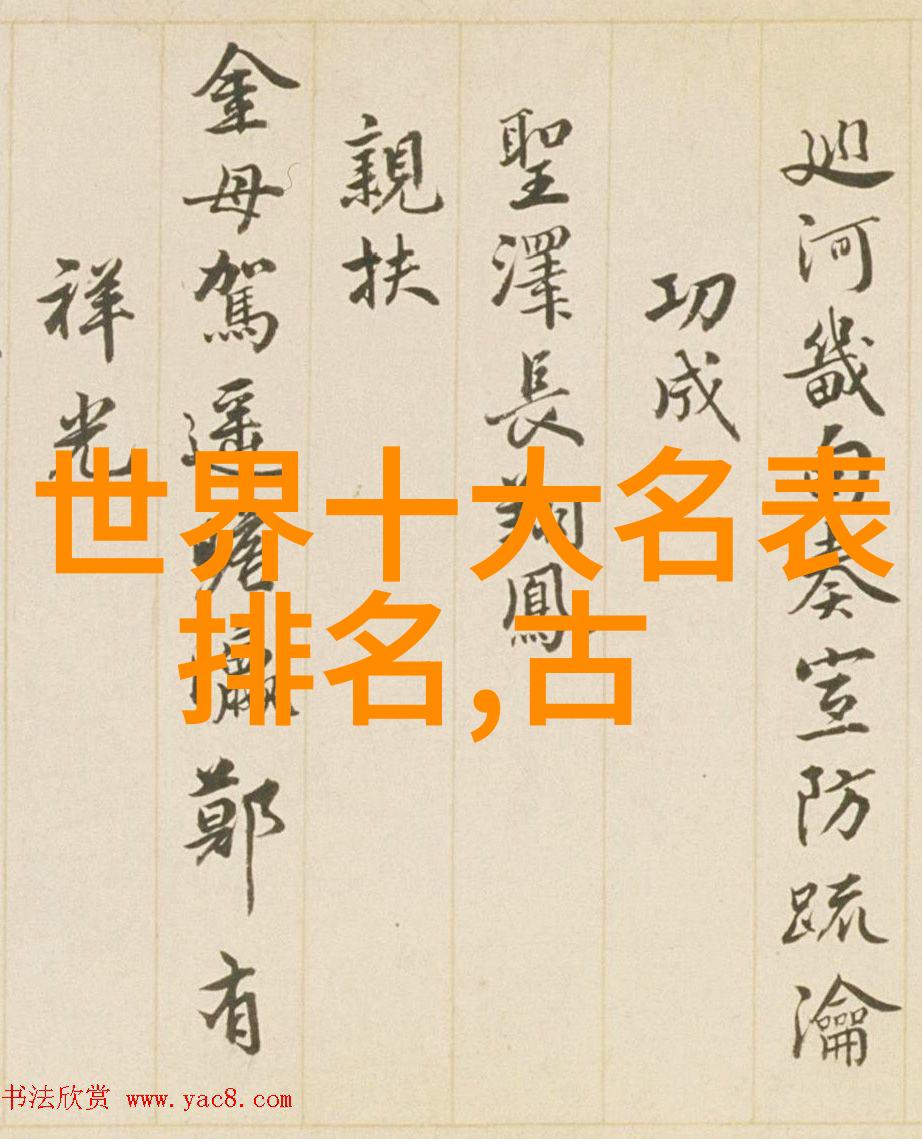 廵河畿南奏宣防疏瀹
功成
聖澤長翔鳳
親扶
金母駕遥瞻瀛鄭有
祥光
世界十大名表
排名,古
书法欣赏 www.yac8.com